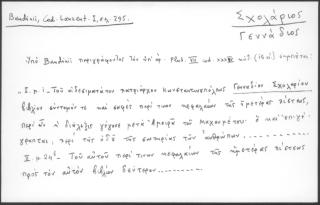 Bandinii, Cod. Laurent. I, σελ. 295.
Σχολάριος
Γεννάδιος
Ὑπὸ Bandinii περιγράφεται τοῦ ὑπ' ἀρ. Plut. VII cod. XXXIV τοῦ (16 αἰ) σημειοῦται:
"Σ. μ. 1 - Τοῦ αἰδεσιμωτάτου πατριάρχου Κωνσταντινουπόλεως Γενναδίου Σχολαρίου
βιβλίον σύντομόν τε καὶ σαφὲς περί τινων κεφαλαίων τῆς ἡμετέρας πίστεως,
περὶ ὧν ἡ διάλεξις γέγονε μετὰ Ἀμοιρᾶ τοῦ Μαχουμέτου· ὃ καὶ ἐπιγέ-
γραπται, περὶ τῆς ὁδοῦ τῆς σωτηρίας τῶν ἀνθρώπων
Σ. μ. 24β - Τοῦ αὐτοῦ περί τινων κεφαλαίων τῆς ἡμετέρας πίστεως
πρὸς τὸν αὐτὸν βιβλίον δεύτερον